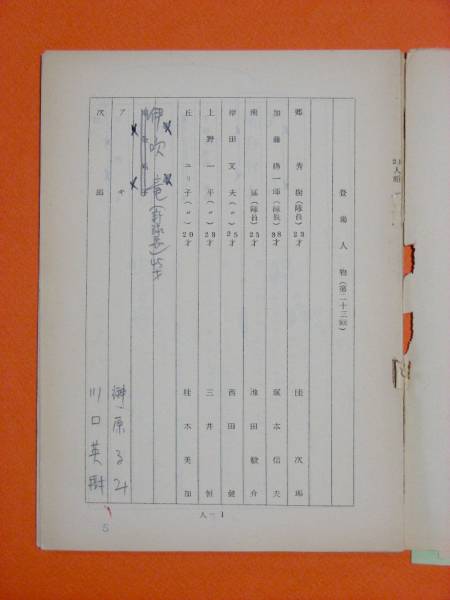 登場人物(第二十三回)
郷秀樹(隊員)23才 団次郎
加藤勝一郎(隊長)38才 塚本信夫
南猛(隊員)25才 池田駿介
岸田文夫(〃)25才 西田健
上野一平(〃)23才 三井恒
丘ユリ子(〃)20才 桂木美加
伊吹竜(新隊長)45才
アキ 榊原るみ
次郎 川口英樹
人ー1
5